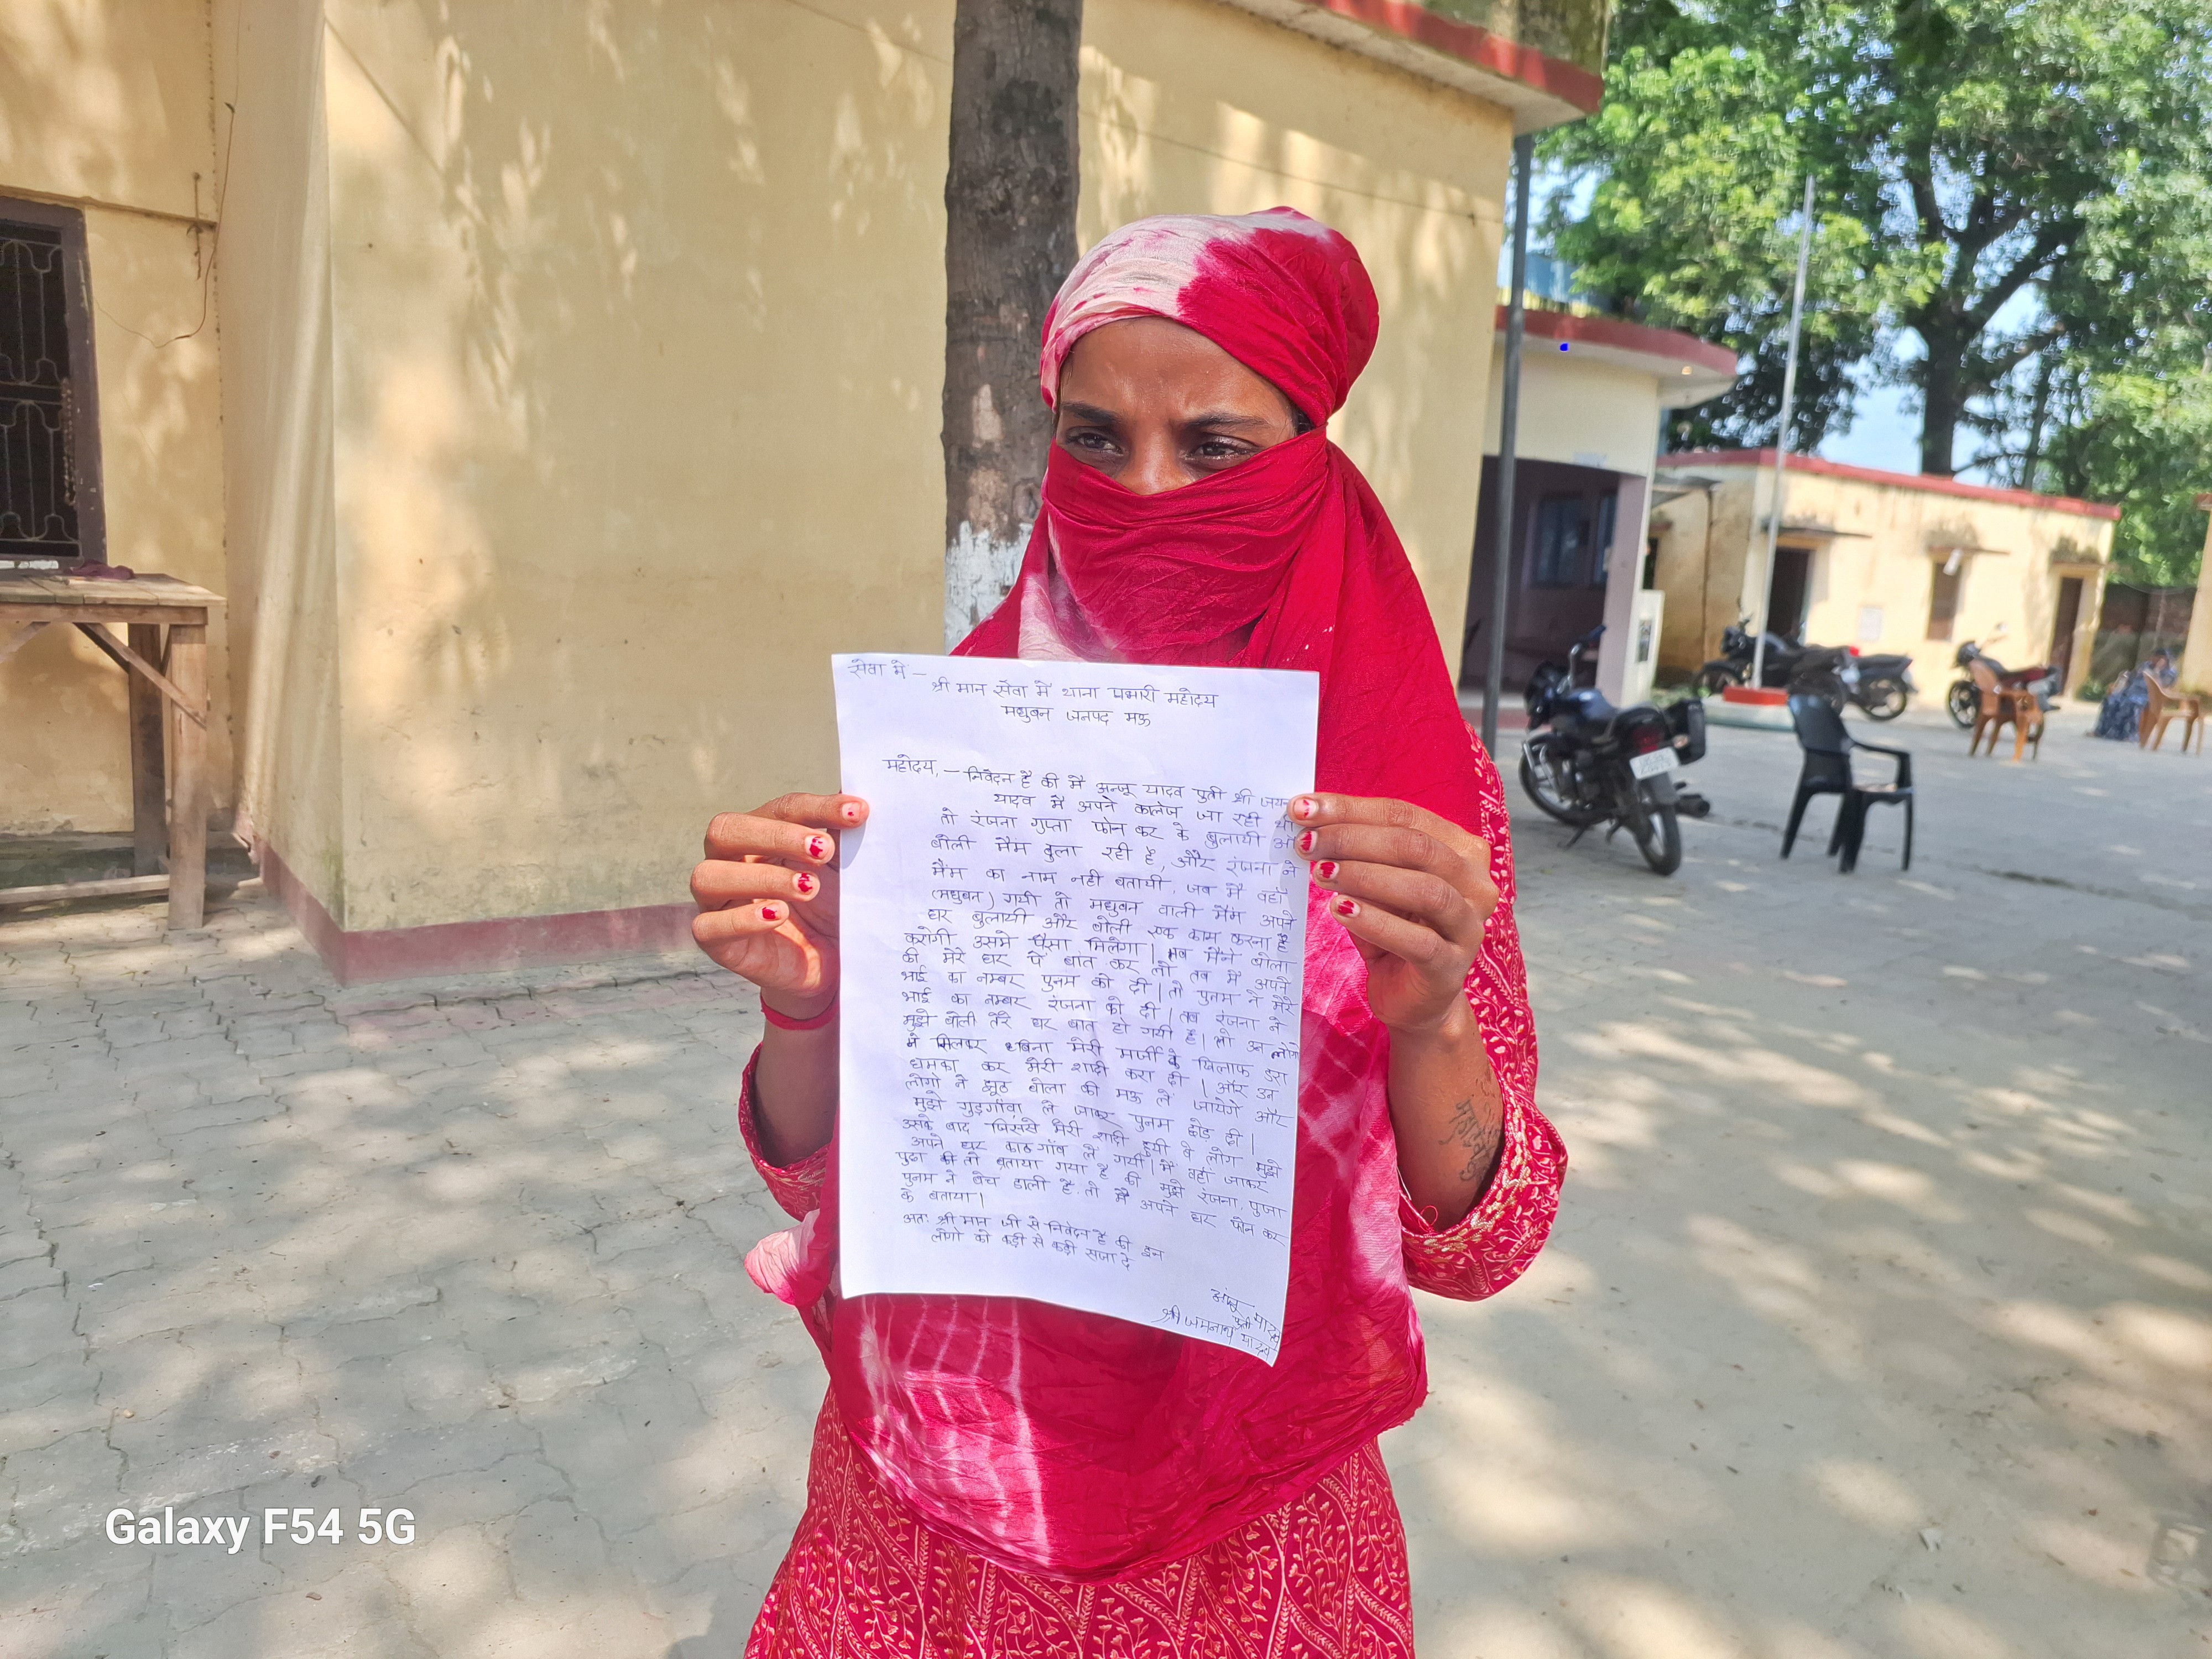 सेवा मे -
श्री मान सेवा में थाना प्रभारी महोदय
मधुबन जनपद मऊ
महोदय, - निवेदन है की मैं अन्जू यादव पुत्री श्री
यादव मैं अपने कालेज जा रही थी
तो रंजना गुप्ता फोन कर के बुलायी
बोली मैम बुला रही है, और रंजना ने
मैम का नाम नही बतायी. जब मैं वहाँ
(मधुबन) गयी तो मधुबन वाली मैम अपने
घर बुलायी और बोली एक काम करना है
करोगी उसमे पैसा मिलेगा। तब मैंने बोला
की मेरे घर पे बात कर लो तब मैं अपने
भाई का नम्बर पुनम को दी। तो पुनम ने मेरे
भाई का नम्बर रंजना को दी। तब रंजना ने
मुझे बोली तेरे घर बात हो गयी है। तो उन लोगो
ने मिलकर बिना मेरी मर्जी के खिलाफ डरा
धमका कर मेरी शादी करा दी। और उन
लोगो ने झूठ बोला की मऊ ले जायेगे और
मुझे गुड़गाँवा ले जाकर पुनम छोड़ दी।
उसके बाद जिससे मेरी शादी हुयी वे लोग मुझे
अपने घर गाँव ले गयी। मैं वहाँ जाकर
पुछा की तो बताया गया है की मुझे रंजना, पुजा
पुनम ने बेच डाली है. तो मैं अपने घर फोन कर
के बताया।
अतः श्री मान जी से निवेदन है की इन
लोगो को कड़ी से कड़ी सजा दे
अन्जू यादव
पुत्री
श्री जमनाथ यादव
Galaxy F54 5G